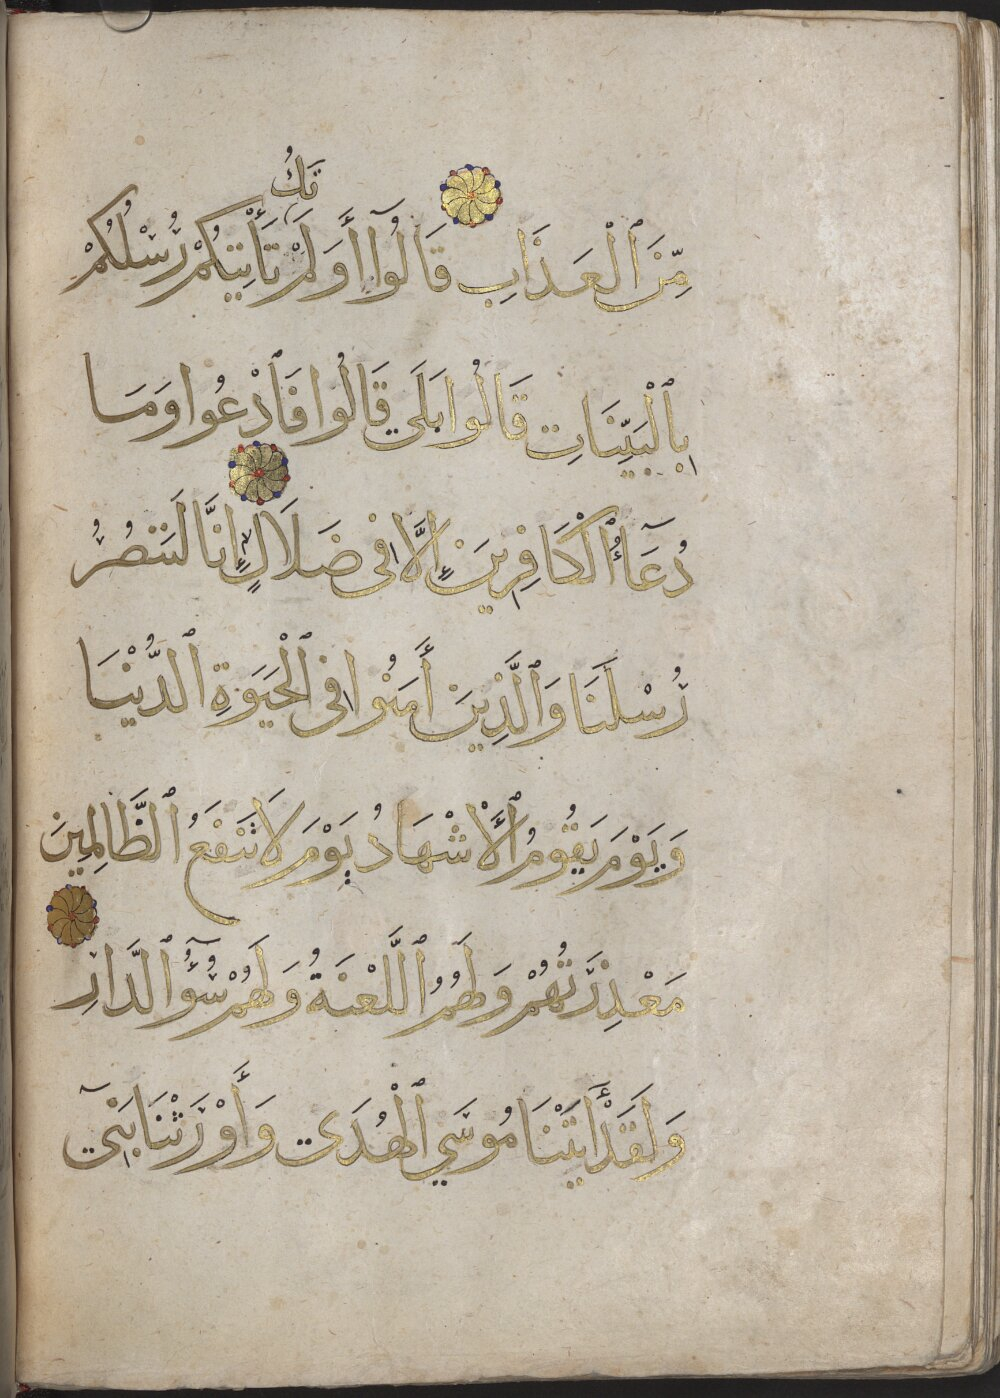 تَكُ
مِّنَ ٱلْعَذَابِ قَالُوٓا أَوَلَمْ تَأْتِيكُمْ رُسُلُكُمْ
بِٱلْبَيِّنَاتِ قَالُوا بَلَى قَالُوا فَٱدْعُوا وَمَا
دُعَآءُ ٱلْكَافِرِينَ إِلَّا فِى ضَلَالٍ إِنَّا لَنَنصُرُ
رُسُلَنَا وَٱلَّذِينَ أَمَنُوا فِى ٱلْحَيَوةِ ٱلدُّنْيَا
وَيَوْمَ يَقُومُ ٱلْأَشْهَادُ يَوْمَ لَا تَنفَعُ ٱلظَّالِمِينَ
مَعْذِرَتُهُمْ وَلَهُمُ ٱللَّعْنَةُ وَلَهُمْ سُوٓءُ ٱلدَّارِ
وَلَقَدْ أَتَيْنَا مُوسَى ٱلْهُدَى وَأَوْرَثْنَا بَنِىٓ